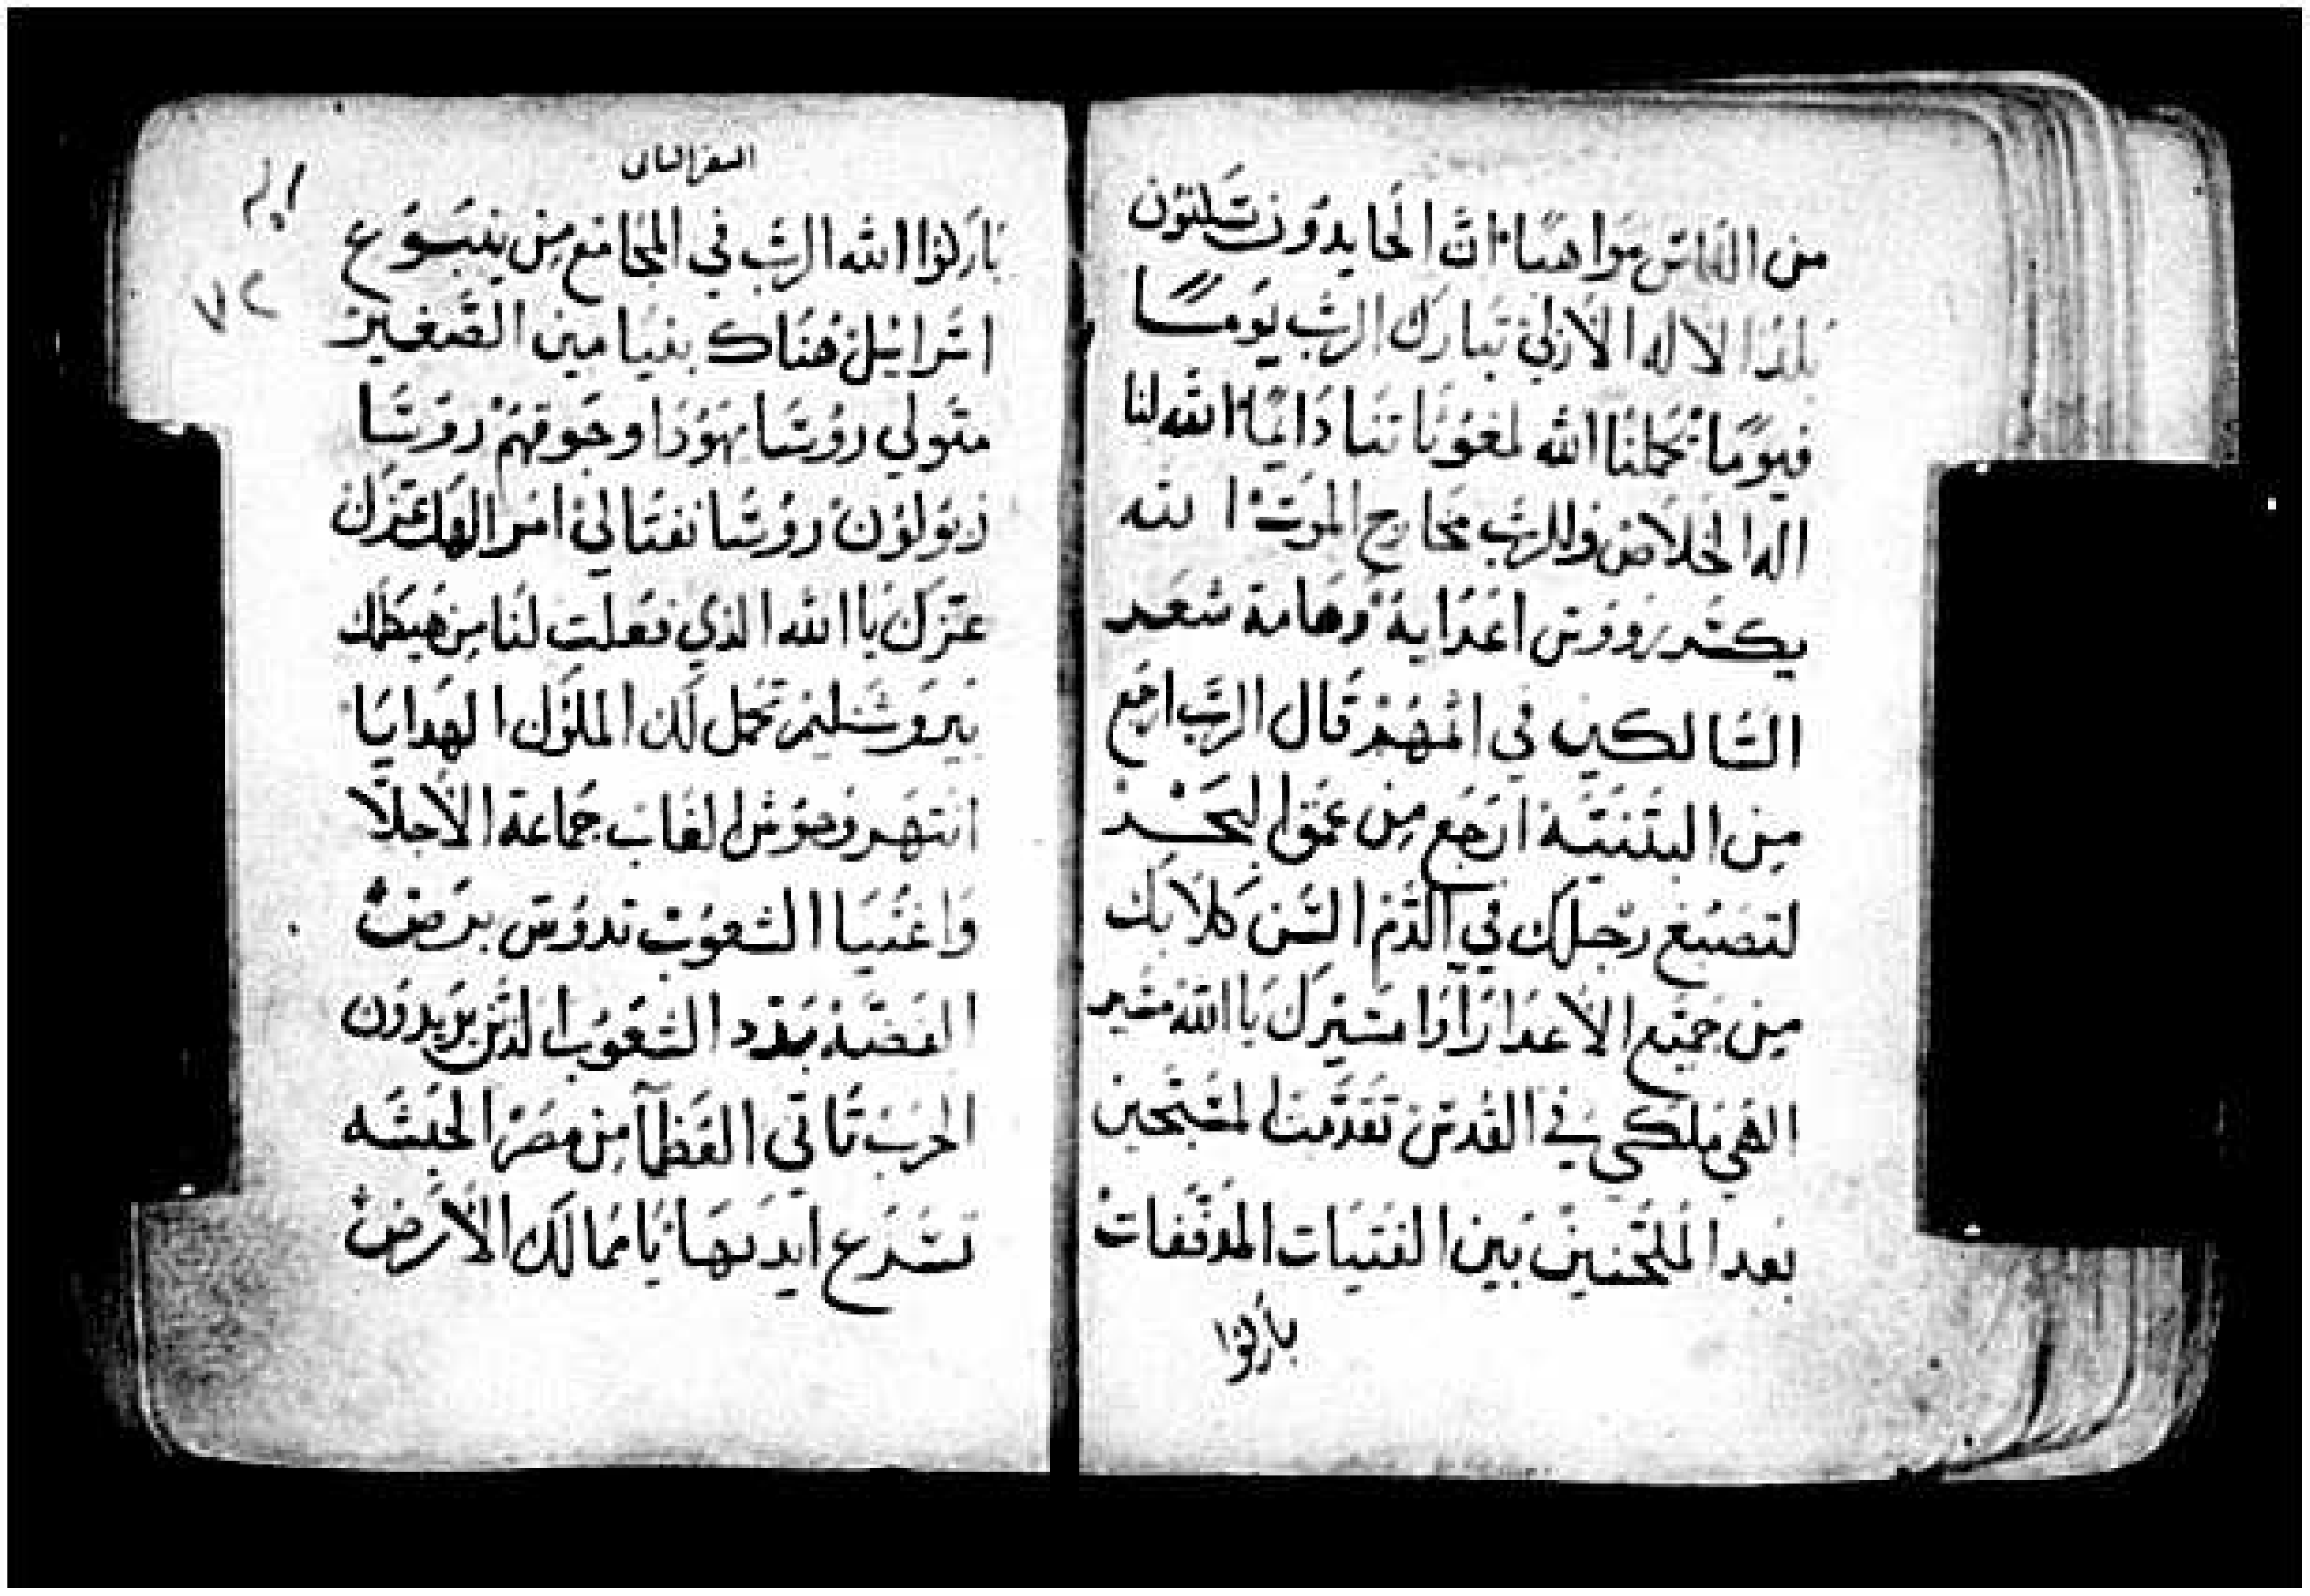 من الناس مواهبًا انّ الحايدون سيلتون
بلد الاله الازلي تبارك الرب يومًا
فيومًا تحملنا الله لمعوناتنا دايمًا الله لنا
اله الخلاص وللرب مخارج الموت الله
يكسر رووس اعدايه وهامة شعر
السالكين في اثمهم قال الرب ارجع
من البثنيه ارجع من عمق البحر
لتصبغ رجلك في الدم السن كلابك
من جميع الأعدا رآوا مسيرك يا الله مسير
الهي ملكي في القدس تقدمت المسبحين
بعد الملحنين بين الفتيات المدففات
باركوا
السفر الثاني
باركوا الله الرب في المجامع من ينبوع
اسراييل هناك بنيامين الصغير
متولي روسا يهوذا وجوقهم روسا
زبولون روسا نفتالي امر الهك عزك
عزك يا الله الذي فعلت لنا من هيكلك
بيروشليم تحمل لك الملوك الهدايا
انتهر وحوش الغاب جماعة الأجلا
واغنيا الشعوب تدوس برض
الفضه بدد الشعوب الذين يريدون
الحرب تاتي العظمآ من مصر الحبشه
تسرع ايديها يا ممالك الأرض
٧٢